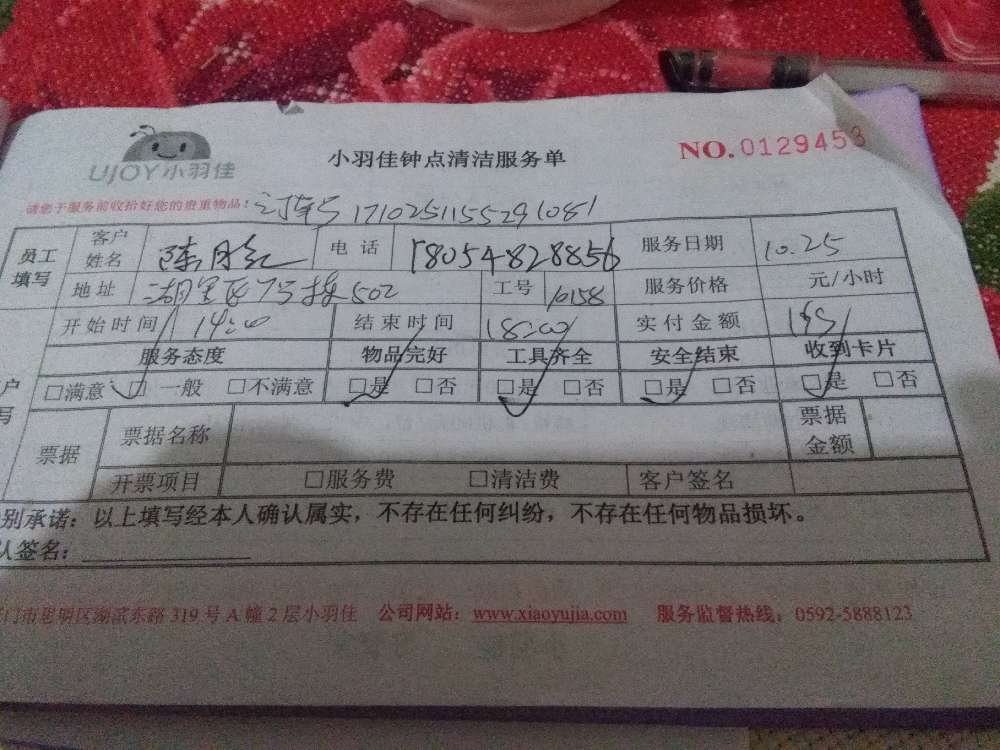 UJOY小羽佳
小羽佳钟点清洁服务单
NO.0129453
请您于服务前收拾好您的贵重物品!
员工填写 客户姓名 电话 18054828856 服务日期 10.25
地址 502 工号 10158 服务价格 元/小时
开始时间 14:00 结束时间 18:00 实付金额
服务态度 物品完好 工具齐全 安全结束 收到卡片
□满意 □一般 □不满意 □是 □否 □是 □否 □是 □否 □是 □否
票据 票据名称 票据金额
开票项目 □服务费 □清洁费 客户签名
别承诺:以上填写经本人确认属实,不存在任何纠纷,不存在任何物品损坏。
认签名:
门市思明区湖滨东路319号A幢2层小羽佳 公司网站:www.xiaoyujia.com 服务监督热线:0592-5888123